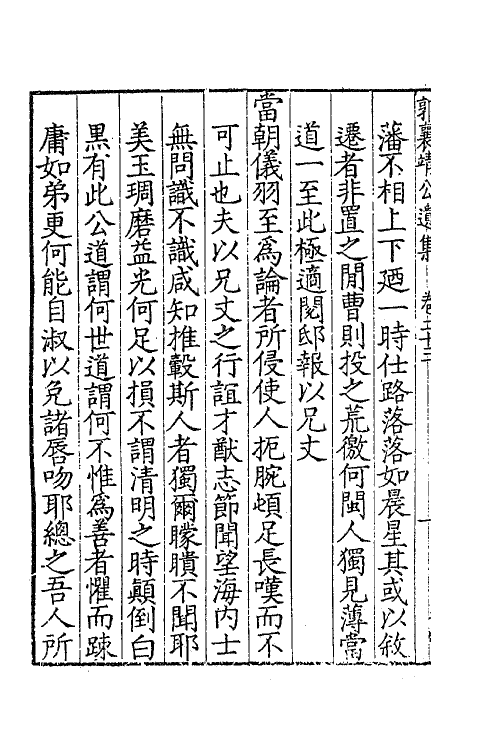 郭襄靖公遺集 卷二十三
藩不相上下廼一時仕路落落如晨星其或以敘
遷者非置之閒曹則投之荒徼何閩人獨見薄當
道一至此極適閱邸報以兄丈
當朝儀羽至爲論者所侵使人扼腕頓足長嘆而不
可止也夫以兄丈之行誼才猷志節聞望海内士
無問識不識咸知推轂斯人者獨爾矇聵不聞耶
美玉琱磨益光何足以損不謂清明之時顚倒白
黒有此公道謂何世道謂何不惟爲善者懼而踈
庸如弟更何能自淑以免諸唇吻耶總之吾人所